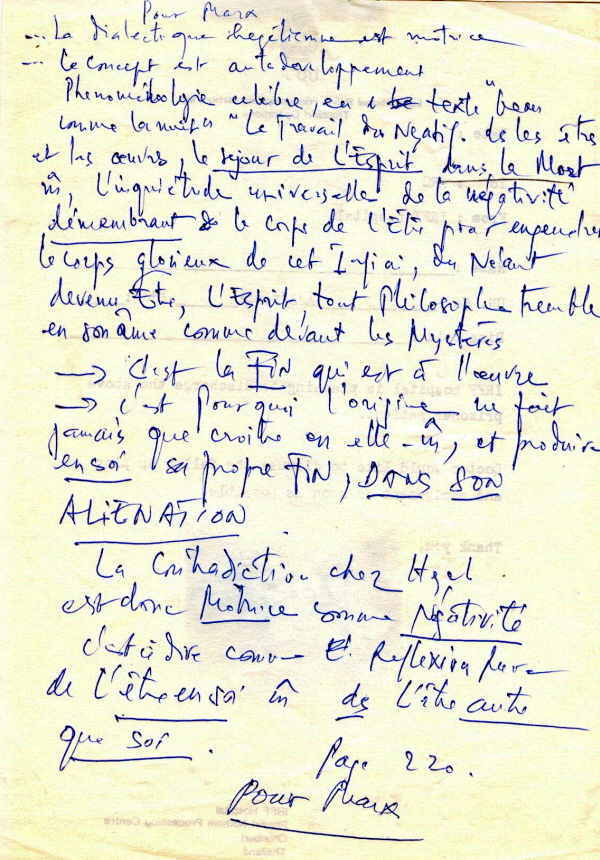 Pour Marx
... La dialectique hegélienne est motrice
— Le concept est autodeveloppement
Phenoménologie celèbre, en texte "beau
comme la nuit" "Le Travail du Négatif. ds les êtres
et les œuvres, le séjour de l'Esprit dans la Mort
m̂, l'inquiétude universelle de la négativité
démembrant le corps de l'Être pour engendrer
le corps glorieux de cet Infini, du Néant
devenu Etre, l'Esprit, tout Philosophe tremble
en son âme comme devant les Mystères
—> C'est la FIN qui est à l'œuvre
—> c'est pourquoi l'origine ne fait
jamais que croître en elle-m̂, et produire
en soi sa propre FIN, DANS SON
ALIENATION.
La Contradiction chez Hegel
est donc Motrice comme Négativité
c'est à dire comme Reflexion pure
de l'être en soi m̂ ds l'être autre
que soi.
Page 220.
Pour Marx
Thank you.
IRFF Hospital
Phanat Nikhom Processing Centre
Chonburi
Thailand